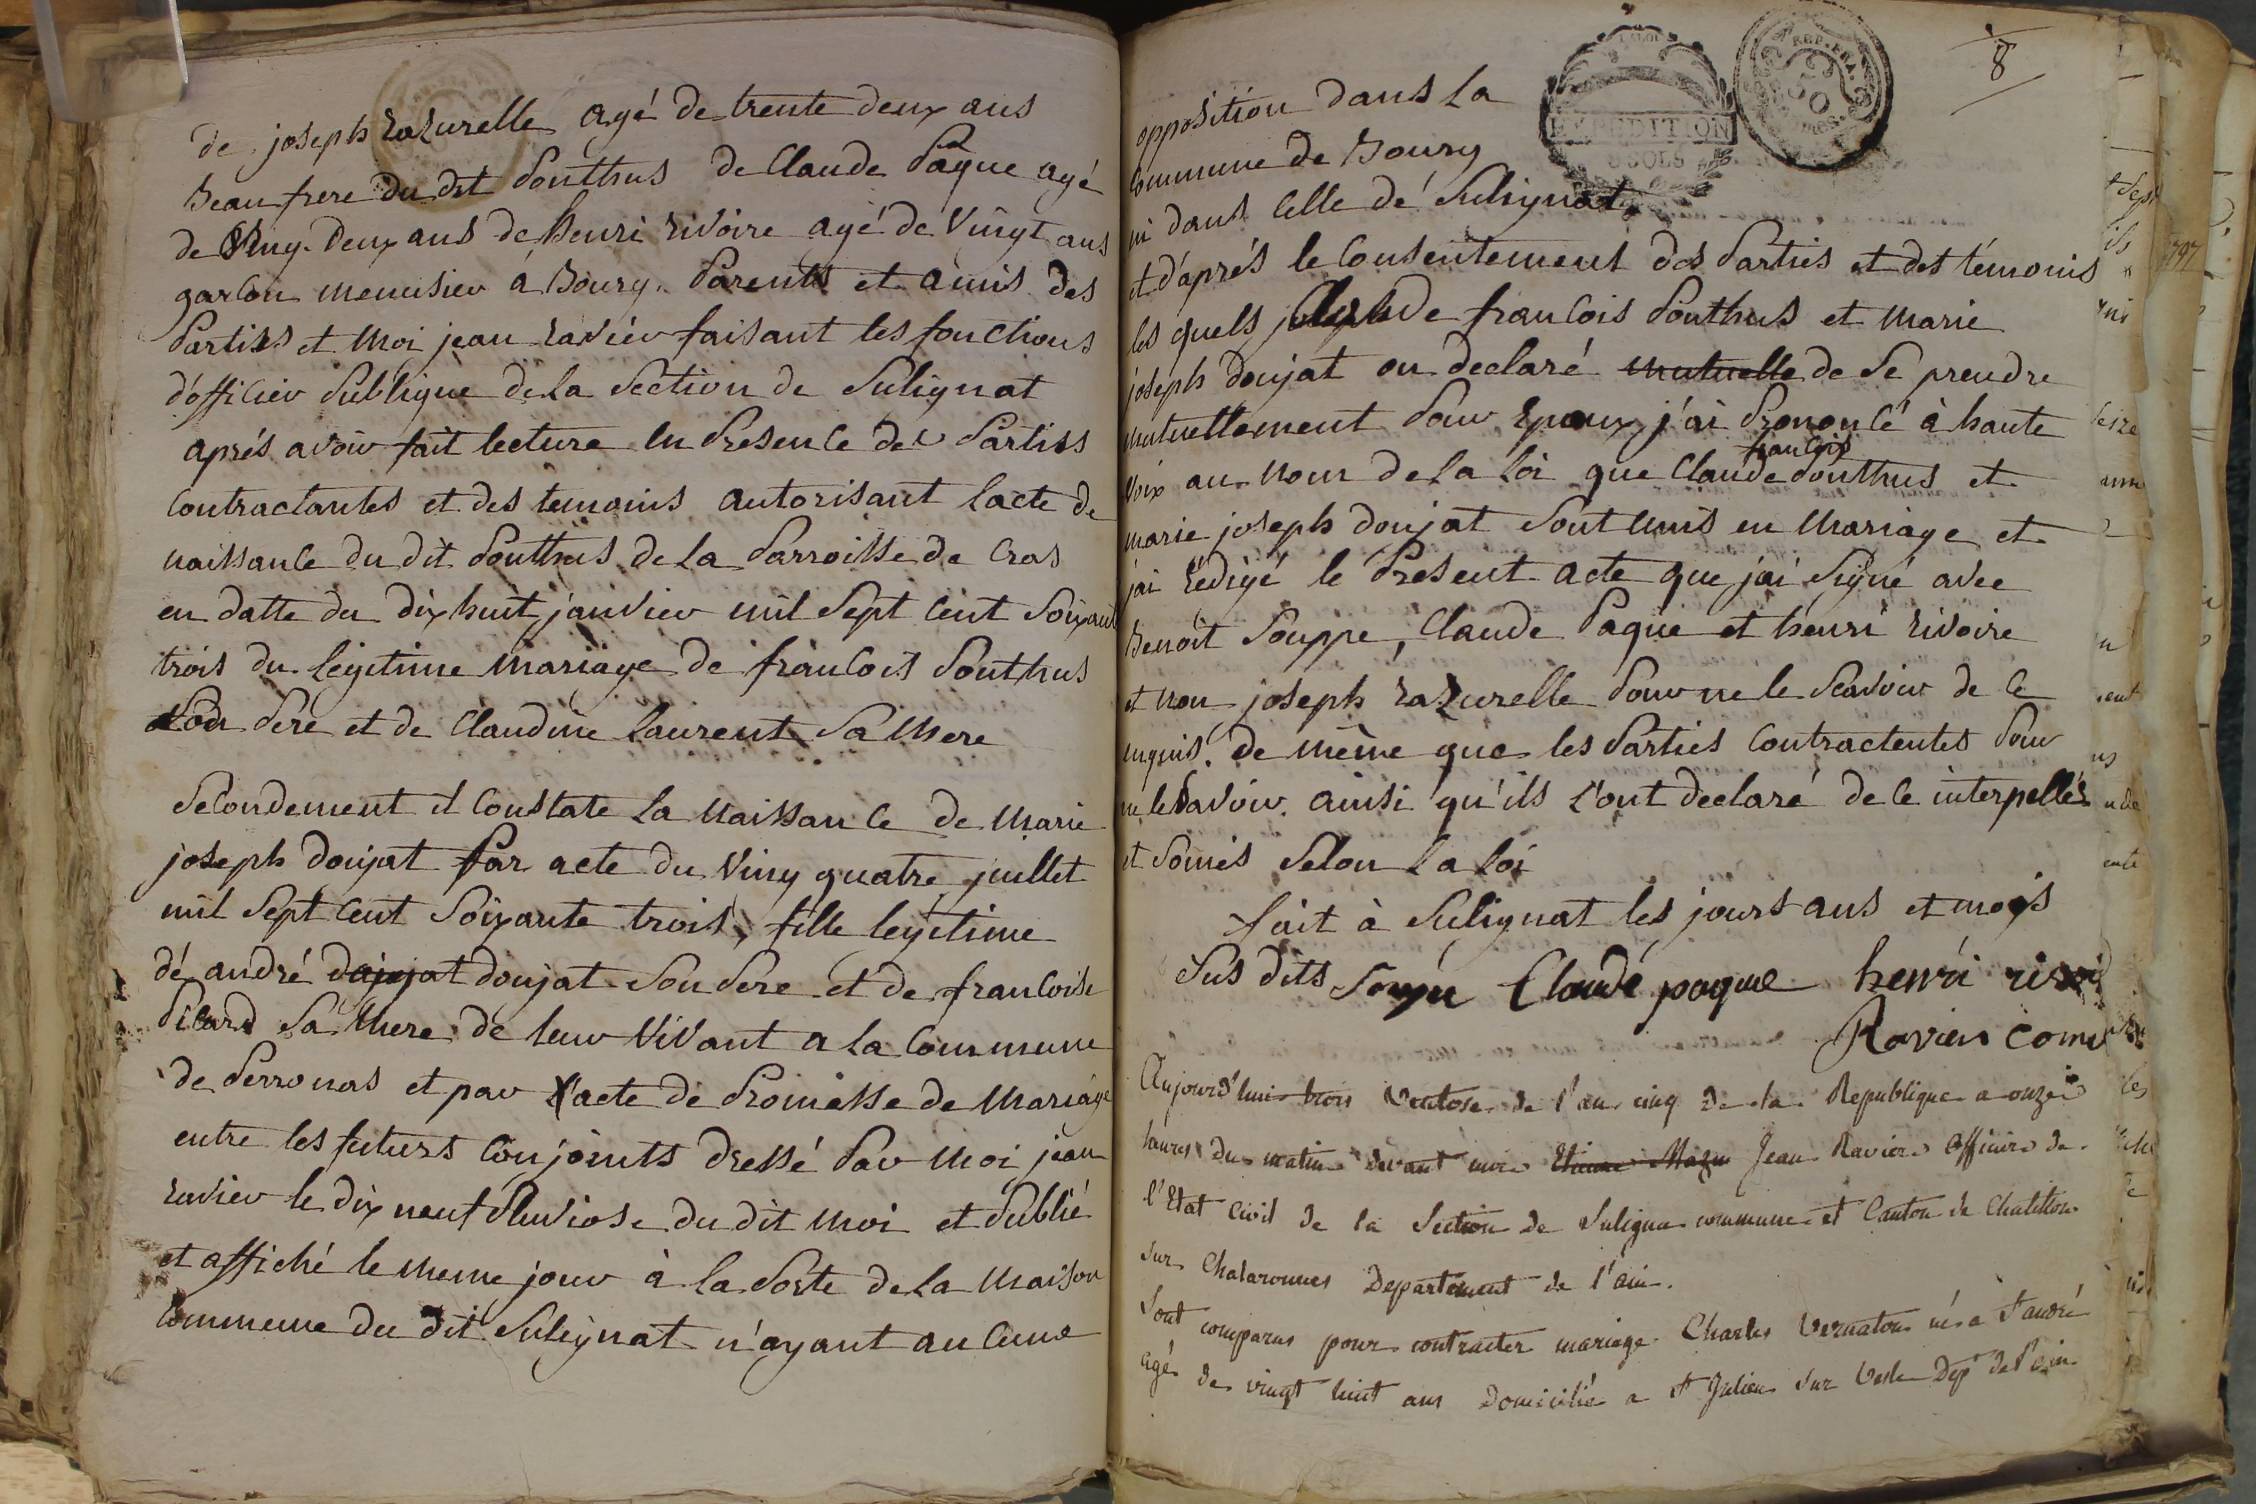 de joseph razurelle agé de trente deux ans
Beau frere du dit Ponthus de Claude Pâque agé
de Ving-Deux ans de henri rivoire agé de Vingt ans
garcon menusier á Bourg. Parents et amis des
Partiss et Moi jean ravier faisant les fonctions
d'officier Publique de La Section de Sulignat
aprés avoir fait lecture en Presence des Partiss
Contractantes et des temoins autorisant l'acte de
naissance du dit Ponthus de La Parroisse de Cras
en datte du dix huit janvier mil Sept Cent Soixante
trois du Légitime Mariage de francois Ponthus
Son Pere et de Claudine Laurent Sa Mere
Secondement il Constate La Naissance de Marie
joseph doujat Par acte du Ving quatre juillet
mil Sept Cent Soixante trois, fille legitime
dé andré dajujat doujat Son Pere et de francoise
Picard Sa Mere de leur Vivant a la Commune
de Perronas et par L'acte de Promesse de Mariage
entre les futurs Conjoints dressé Par Moi jean
ravier le dix neuf Pluviose du dit Moi et Publié
et affiché le meme jour à la Porte de La Maison
Commune du dit Sulignat n'ayant aucune
8
REP. FRA.
EXPEDITION
opposition dans La
Commune de Bourg
ni dans Celle dé Sulignat
et d'aprés le Consentement des Parties et des témoins
les quels Claude francois Ponthus et Marie
joseph doujat on declaré mutuelle de Se prendre
mutuellement Pour Epoux, j'ai Prononcé à haute
francois
Voix au Nom de La Loi que Claude Ponthus et
marie joseph doujat Sont unis en Mariage et
j'ai rédigé le Present acte que j'ai Signé avec
Benoit Souppe, Claude Paque et henri rivoire
et non joseph razurelle Pour ne le Scavoir de Ce
enquis. de même que les Parties Contractentes Pour
ne le Savoir. ainsi qu'ils L'ont declaré de Ce interpellés
et Somés Selon La Loi
fait à Sulignat les jours ans et mois
Sus dits Claude paque henri
Ravier
Aujourd'hui trois Ventose de l'an cinq de la Republique a onze
heures du matin devant moi Etienne Jean Ravier officier de
l'Etat Civil de la Section de Suligna commune et Canton de Chatillon
Sur Chalaronnes Departement de l'ain.
Sont comparus pour contracter mariage Charles Vernaton né a St andré
agé de vingt huit ans Domicilié a St Julien Sur Vesle Dépt de l'ain